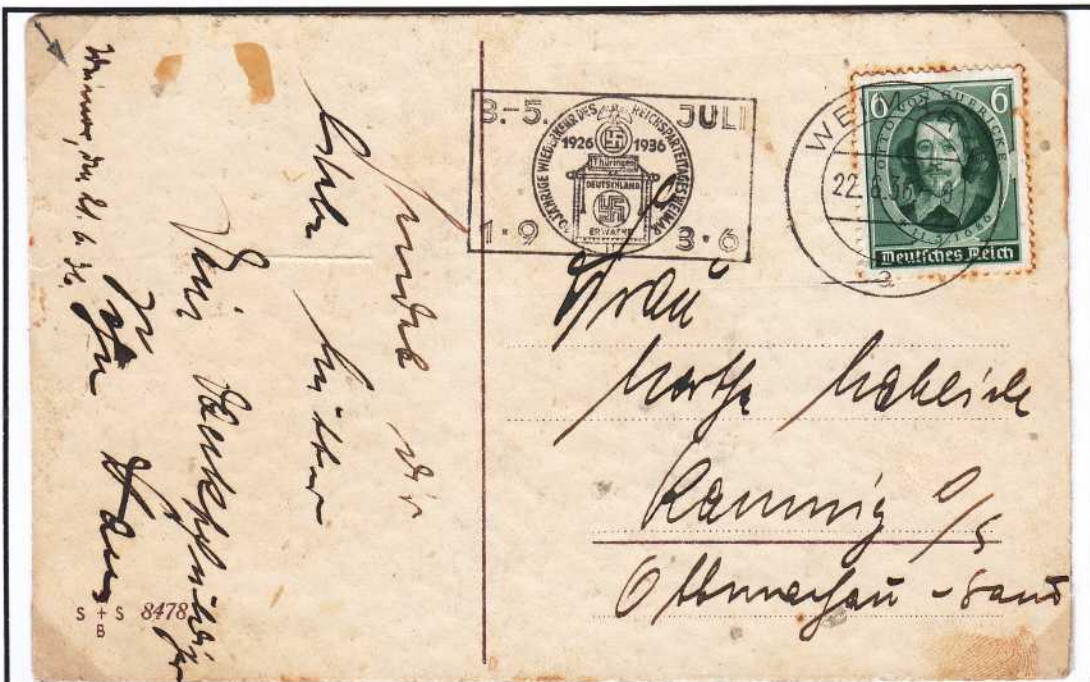 Weimar, den 21.6.36.
sendet Dir
liebe Mutter
Dein dankschuldiger
Sohn Hans
S + S 8478
B
3.-5. JULI
10 JÄHRIGE WIEDERKEHR DES REICHSPARTEITAGES WEIMAR
1926 1936
Thüringen
DEUTSCHLAND
ERWACHE
1·9 3·6
WEIMAR
22.6.36
a
6 6
OTTO VON GUERICKE
11.5.1686
Deutsches Reich
Frau
Martha
Kamnig O/S
Ottmachau - Land